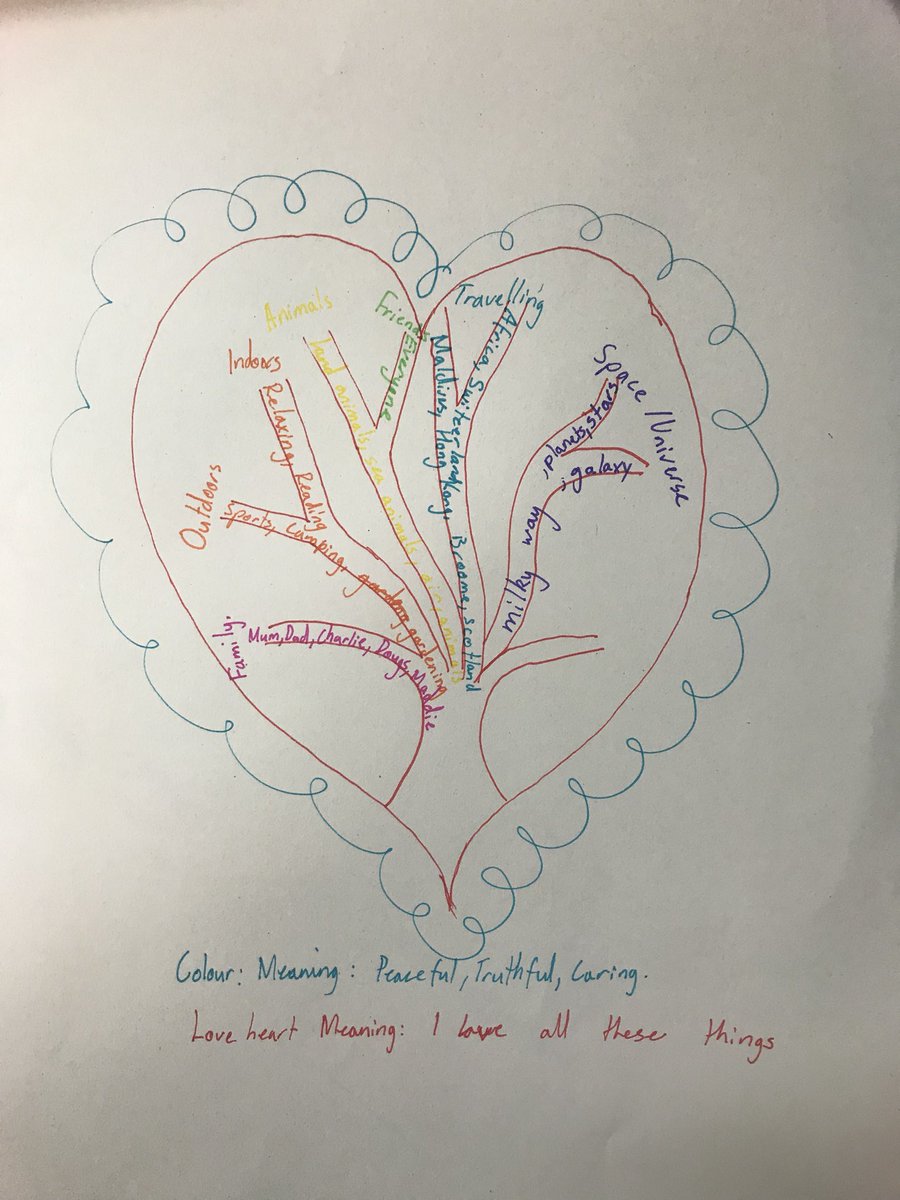 Animals
land animals, sea animals, air animals
Friends
Everyone
Travelling
Maldives, Hong Kong, Broome, Scotland
Africa, Switzerland
Space / Universe
milky way, planets, stars
, galaxy
Indoors
Relaxing, Reading
Outdoors
Sports, Camping, gardening gardening
Family:
Mum, Dad, Charlie, Dougs, Maddie
Colour: Meaning: Peaceful, Truthful, Caring.
Love heart Meaning: I love all these things